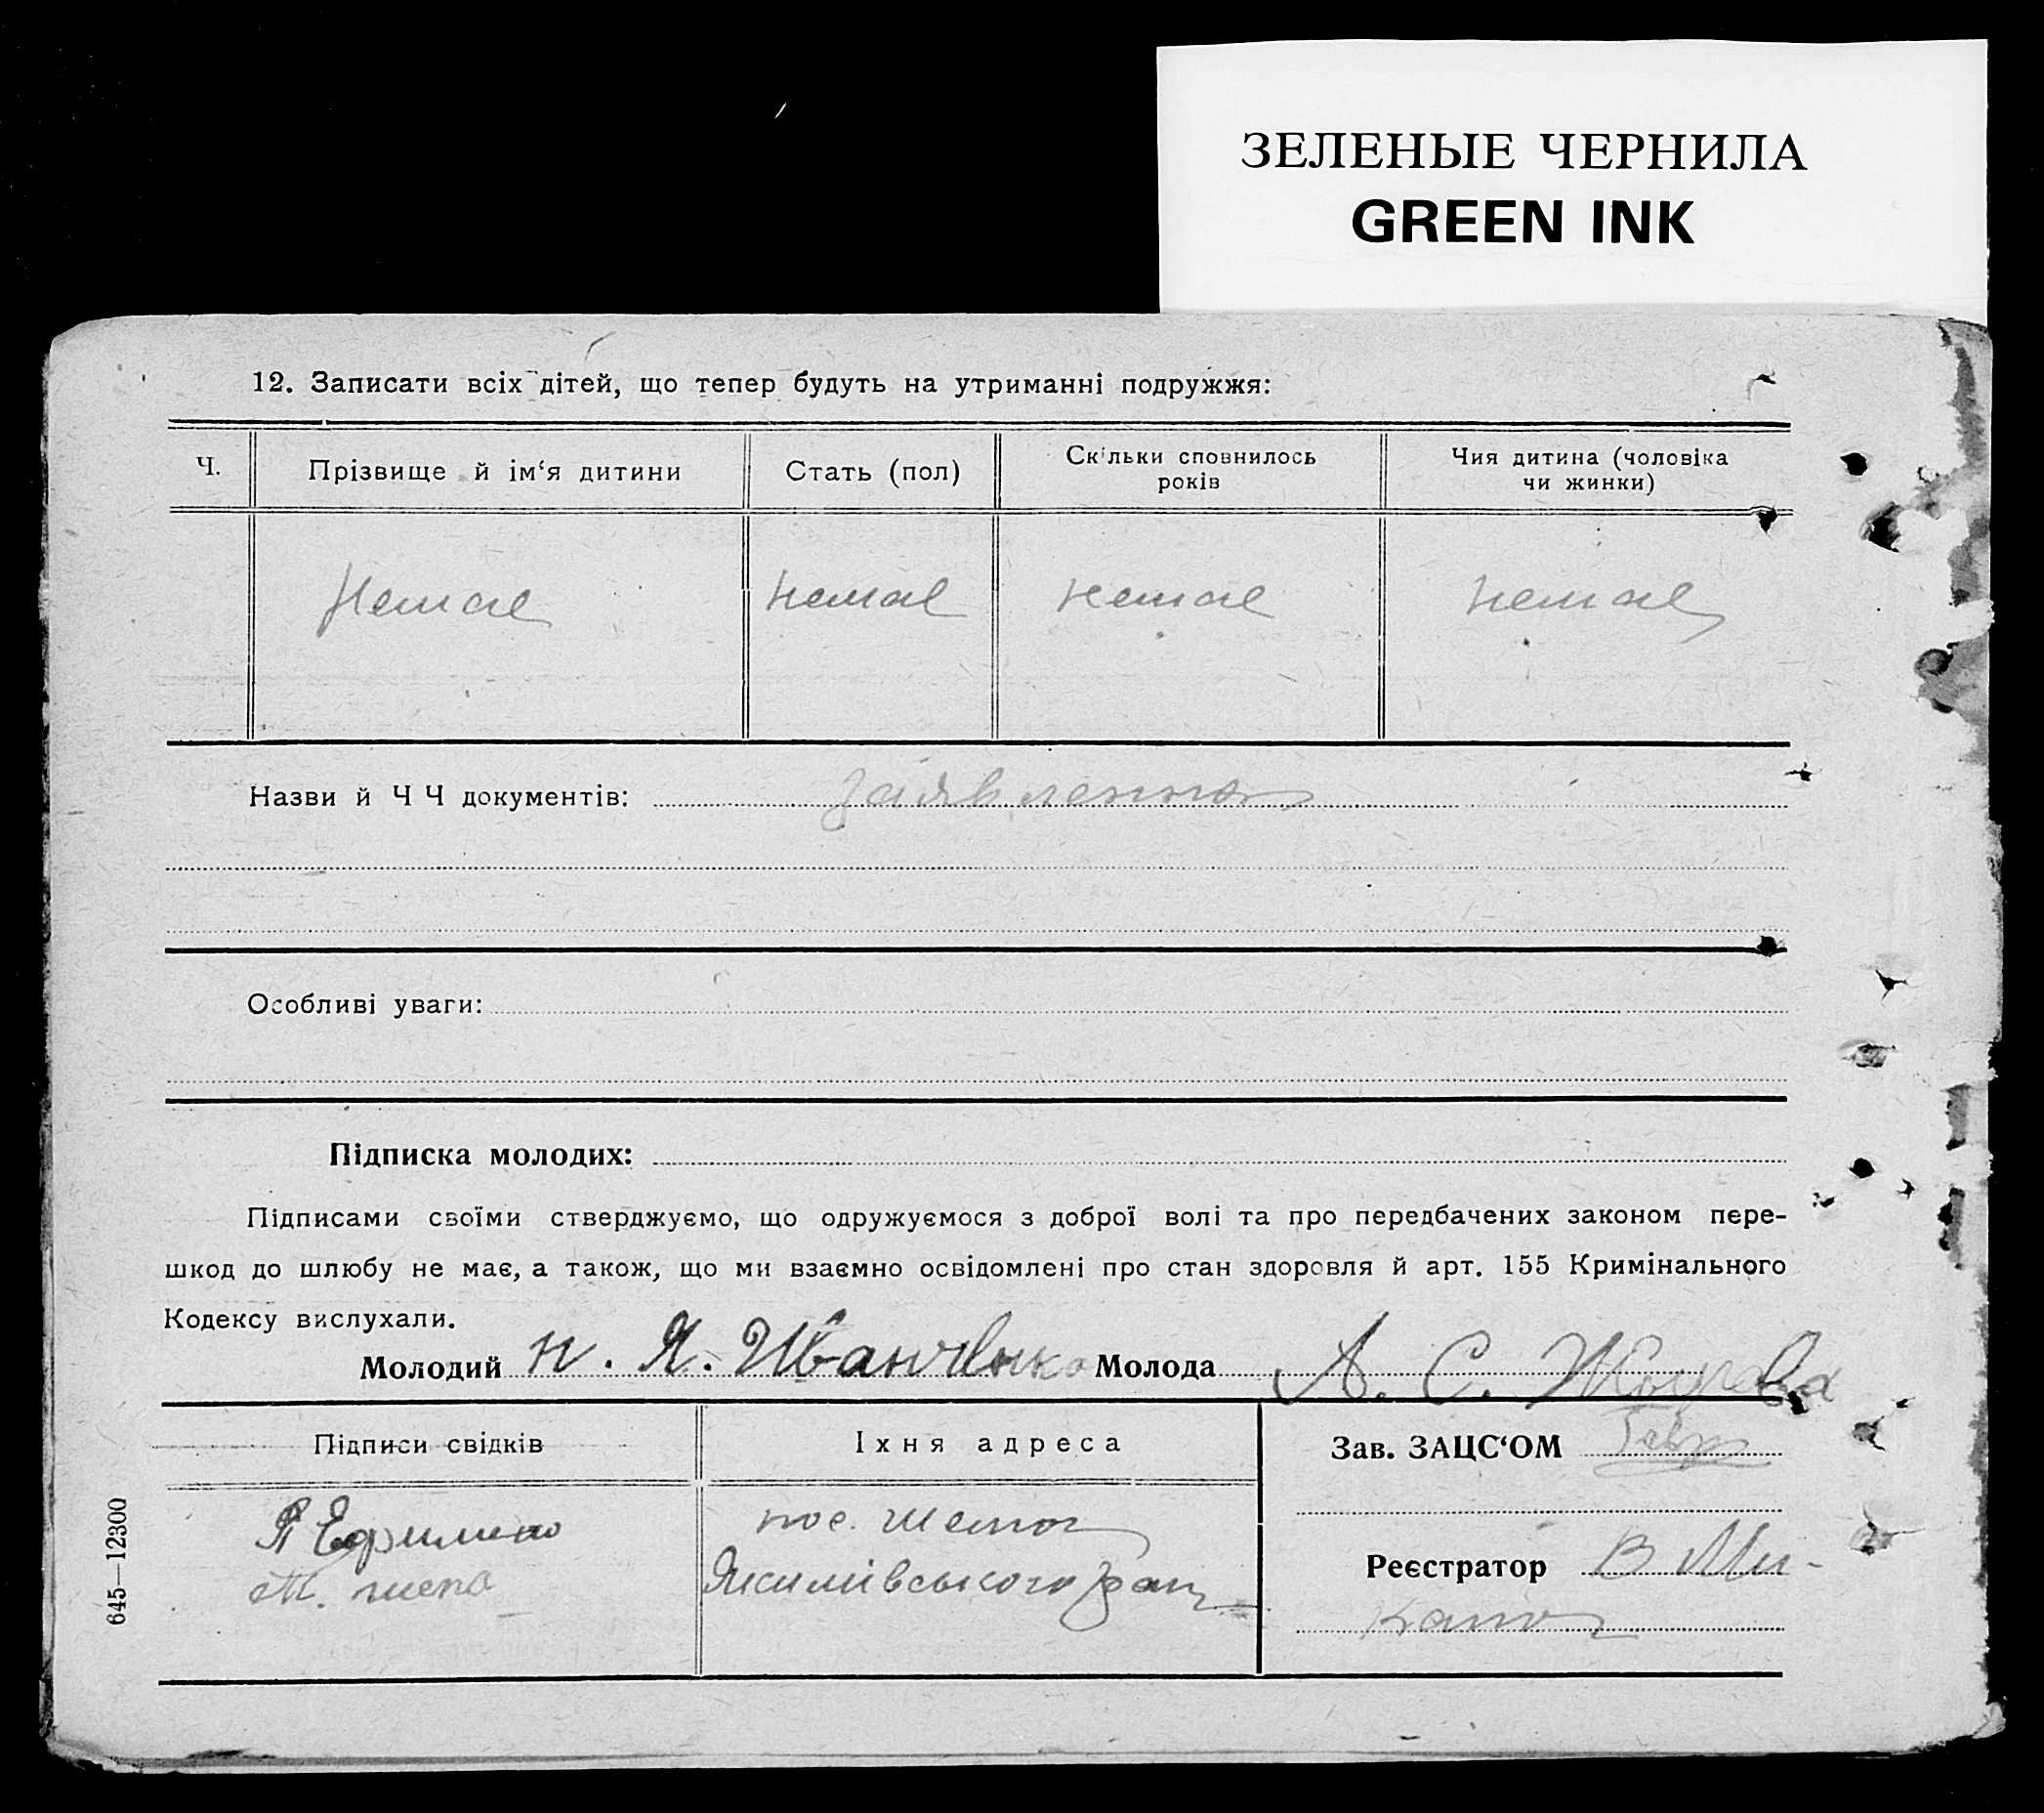 ЗЕЛЕНЫЕ ЧЕРНИЛА
GREEN INK
12. Записати всіх дітей, що тепер будуть на утриманні подружжя:
Ч.
Прізвище й ім‘я дитини
Стать (пол)
Скільки сповнилось
років
Чия дитина (чоловіка
чи жинки)
Немає немає немає немає
Назви й Ч Ч документів: заявлення
Особливі уваги:
Підписка молодих:
Підписами своїми стверджуємо, що одружуємося з доброї волі та про передбачених законом пере-
шкод до шлюбу не має, а також, що ми взаємно освідомлені про стан здоровля й арт. 155 Кримінального
Кодексу вислухали.
Молодий Н. Я. Молода А. С.
Підписи свідків
Їхня адреса
Зав. ЗАЦС‘ОМ
пос.
Реєстратор В Ми-
645—12300